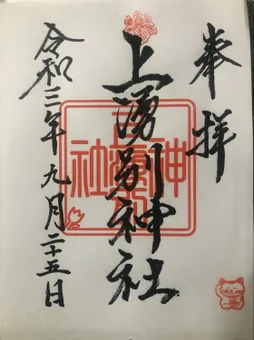 奉拝
上湧別神社
令和三年九月二十五日